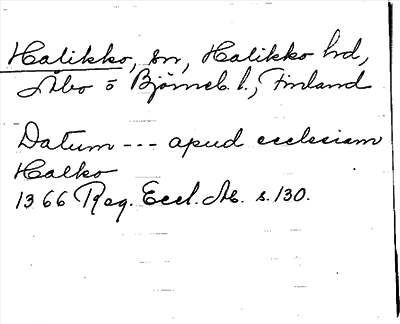 Halikko, sn, Halikko hd,
Åbo o Björneb. l., Finland
Datum --- apud ecclesiam
Halko
1366 Reg. Eccl. Ab. s. 130.